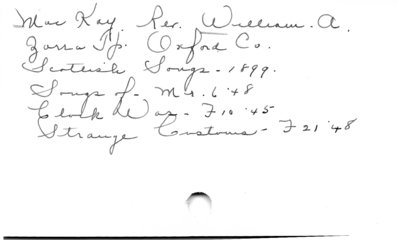 Mac Kay, Rev. William. A.
Zorra Tp. Oxford Co.
Scottish Songs - 1899.
Songs of - Mr. 6 '48
Clock Was - F 10 '45
Strange Customs - F 21 '48